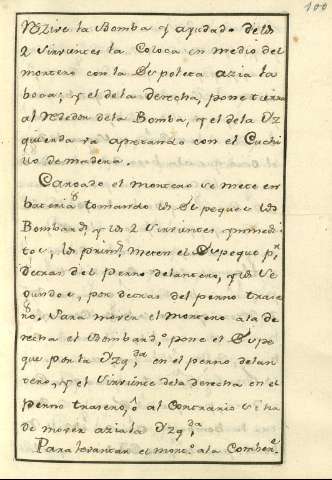 100
rezive la Bomba y ayudado de los
2 Sirvientes la Coloca en medio del
mortero con la Espoleta azia la
boca; y el de la derecha, pone tierra
al Rededor de la Bomba, y el de la Yz
quierda va apretando con el Cuchi
llo de madera.
Cargado el mortero se mete en
bateria tomando los Espeques los
Bombard.s y los 2 Sirvientes
los prim.s meten el Espeque p.r
detras del perno delantero, y los Se
gundos, por detras del perno trase
ro, para mover el mortero a la de
recha el Bombard.o pone el Espe
que por la Yzq.da en el perno delan
tero, y el Sirviente de la derecha en el
perno trasero, o al Contrario se ha
de mover azia la Yzq.da
Para levantar el mort.o a la